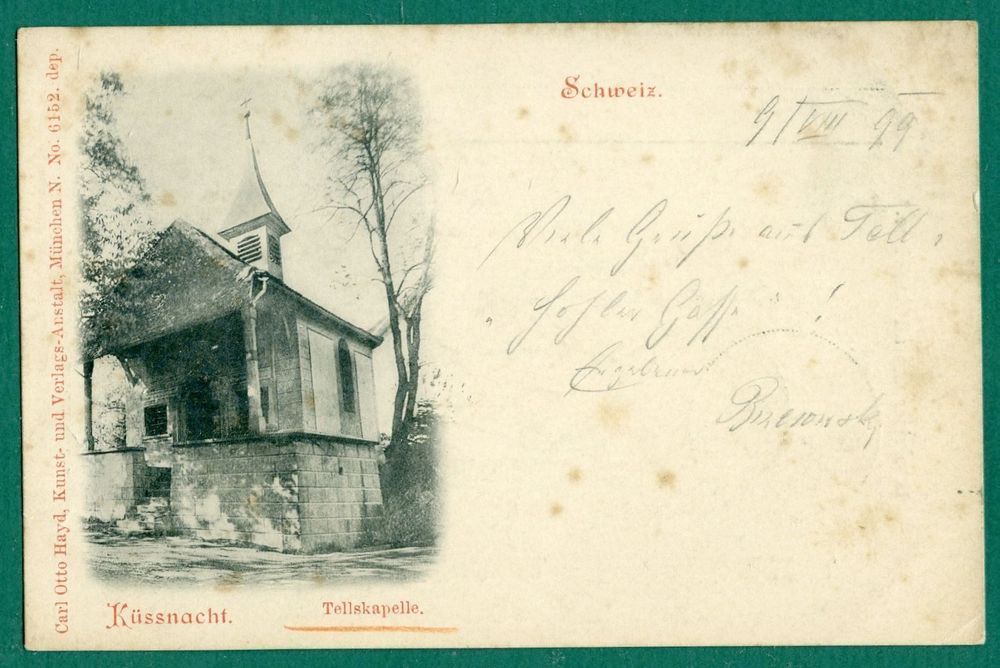 Schweiz.
9/VIII 99
Viele Grüße aus Tell.
"hohler Gasse"!
Carl Otto Hayd, Kunst- und Verlags-Anstalt, München N. No. 6152. dep.
Küssnacht.
Tellskapelle.